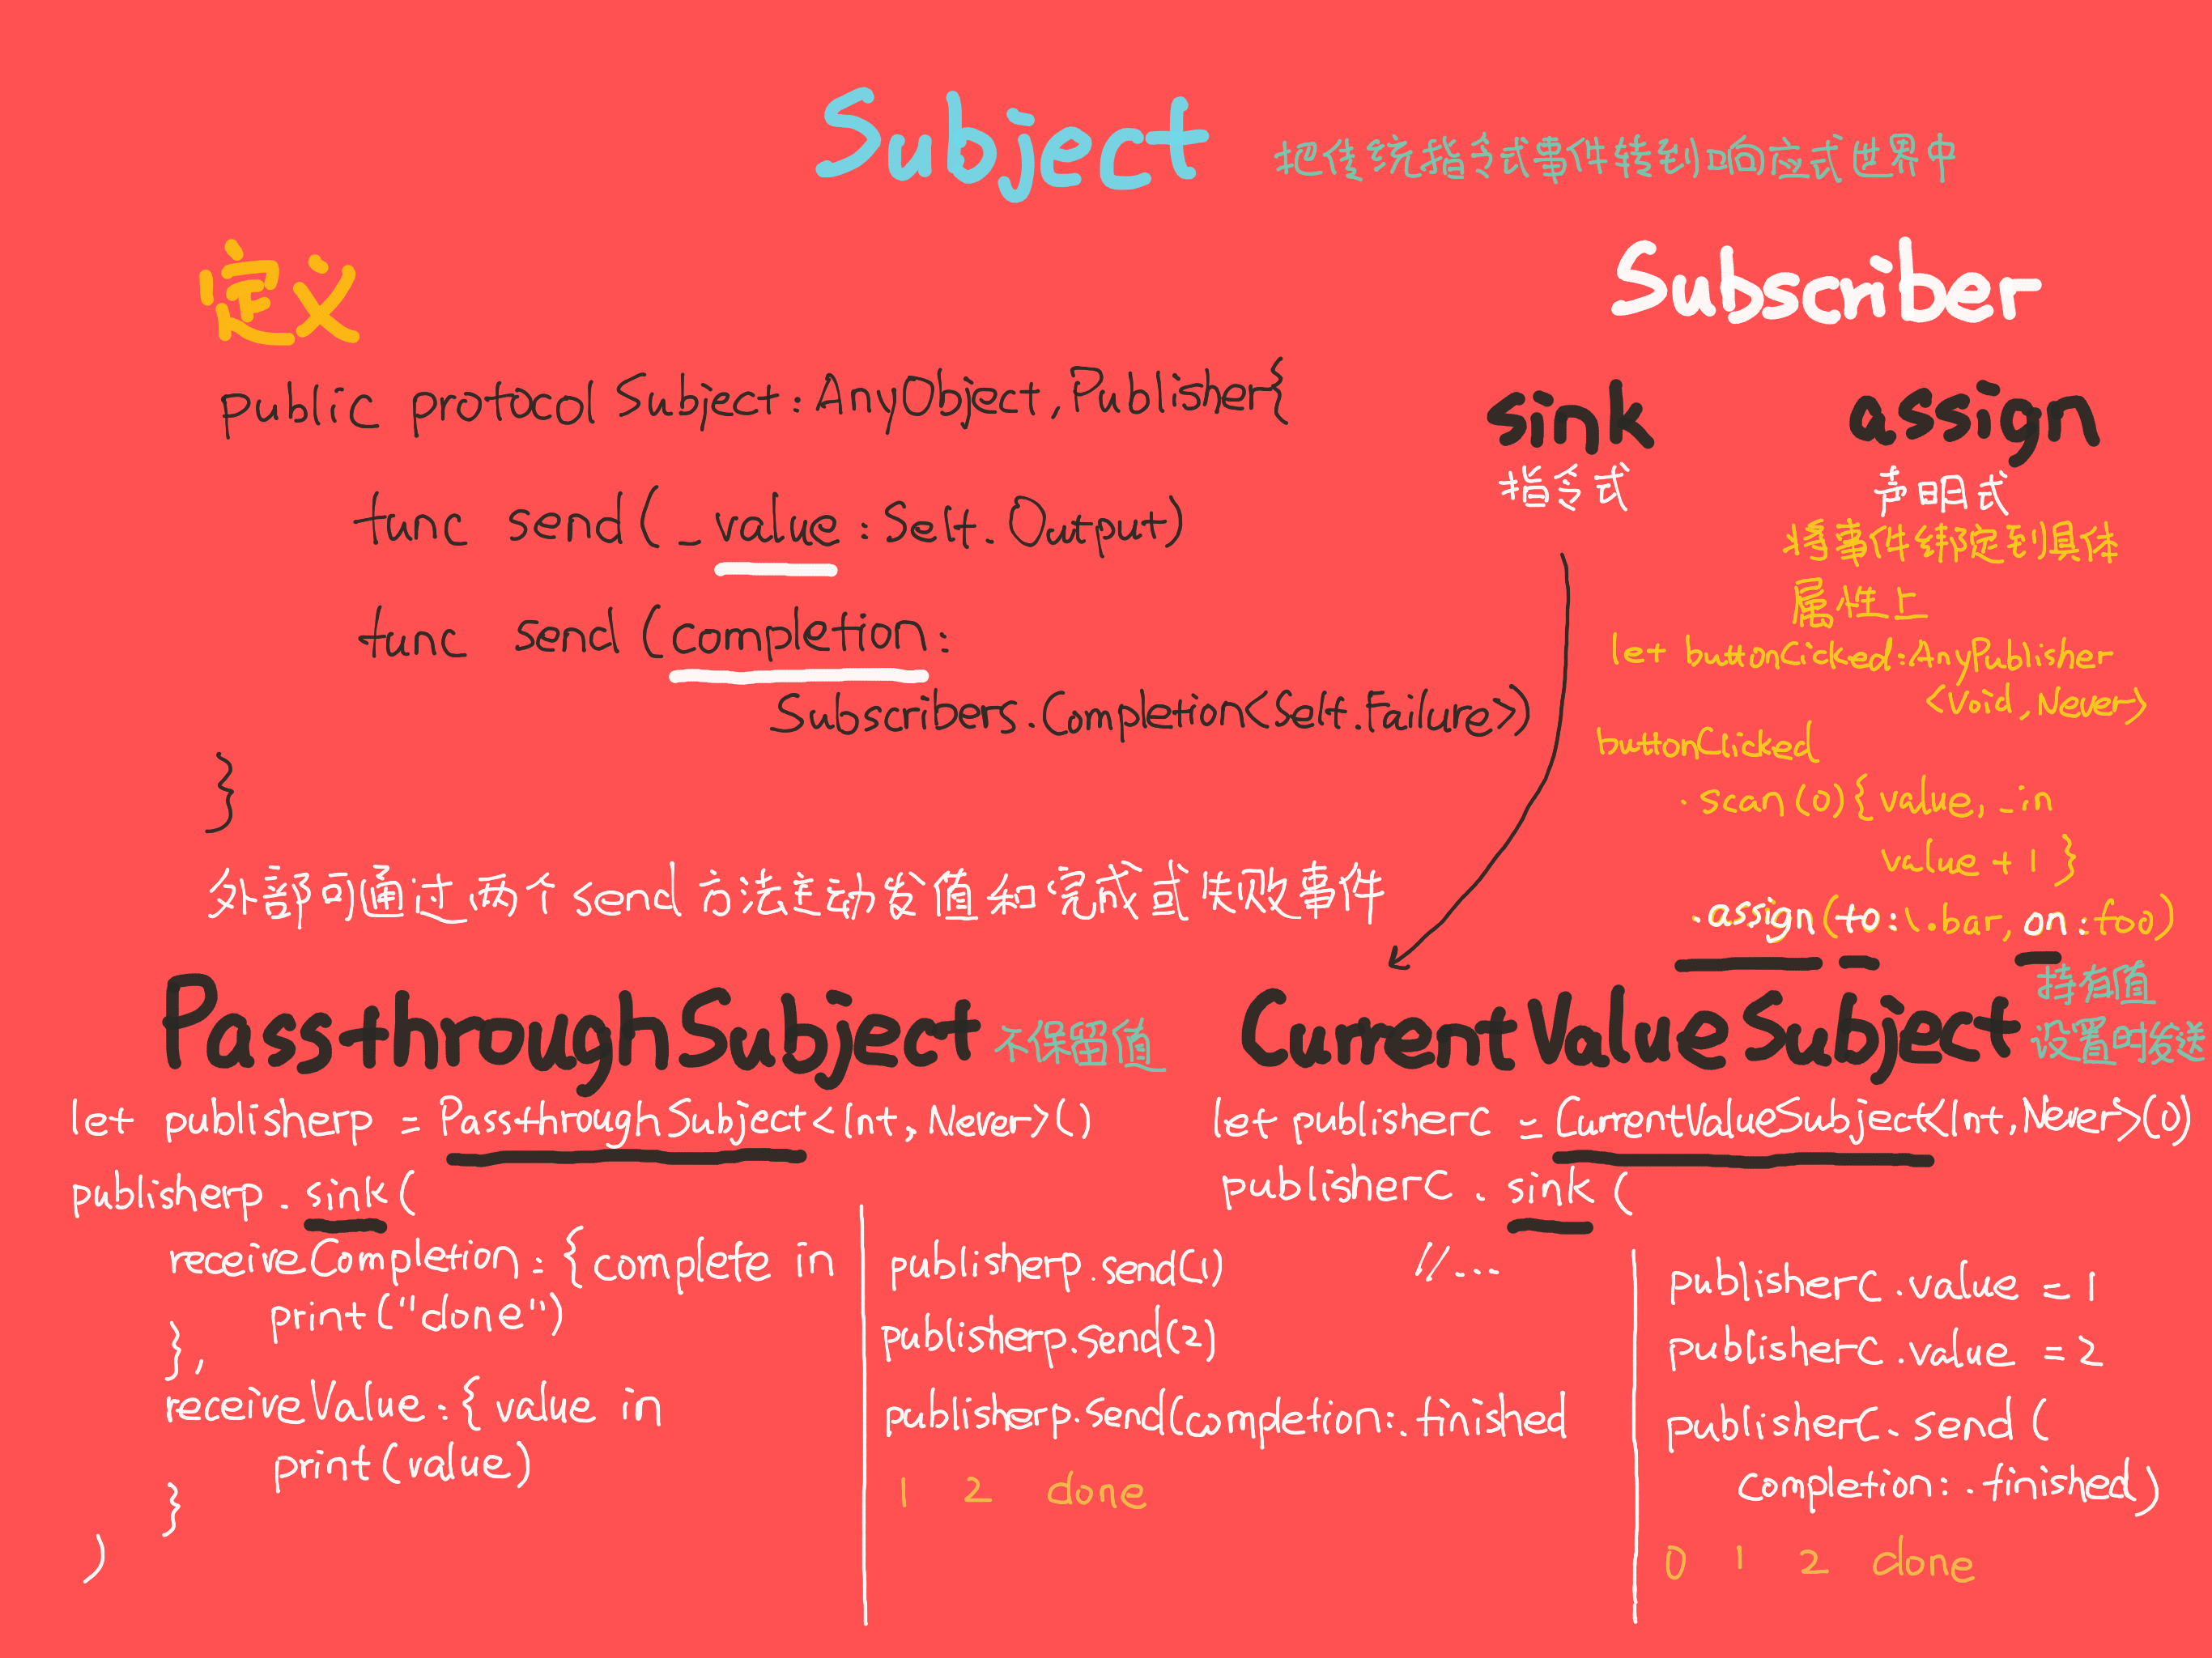 Subject
把传统指令式事件转到响应式世界中
定义
public protocol Subject:AnyObject,Publisher{
func send(_value:Self.Output)
func send(completion:
Subscribers.Completion<Self.Failure>)
}
外部可通过两个send方法主动发值和完成或失败事件
Subscriber
sink
指令式
assign
声明式
将事件绑定到具体
属性上
let buttonCicked:AnyPublisher
<Void,Never>
buttonClicked
.scan(0){value,_in
value+1}
.assign(to:\.bar,on:foo)
PassthroughSubject
不保留值
let publisherp = PassthroughSubject<Int,Never>()
publisherp.sink(
receiveCompletion:{complete in
print("done")
},
receiveValue:{value in
print(value)
}
)
publisherp.send(1)
publisherp.send(2)
publisherp.send(completion:.finished
1 2 done
CurrentValueSubject
持有值
设置时发送
let publisherC = CurrentValueSubject<Int,Never>(0)
publisherC.sink(
//...
publisherC.value = 1
publisherC.value = 2
publisherC.send(
completion:.finished)
0 1 2 done